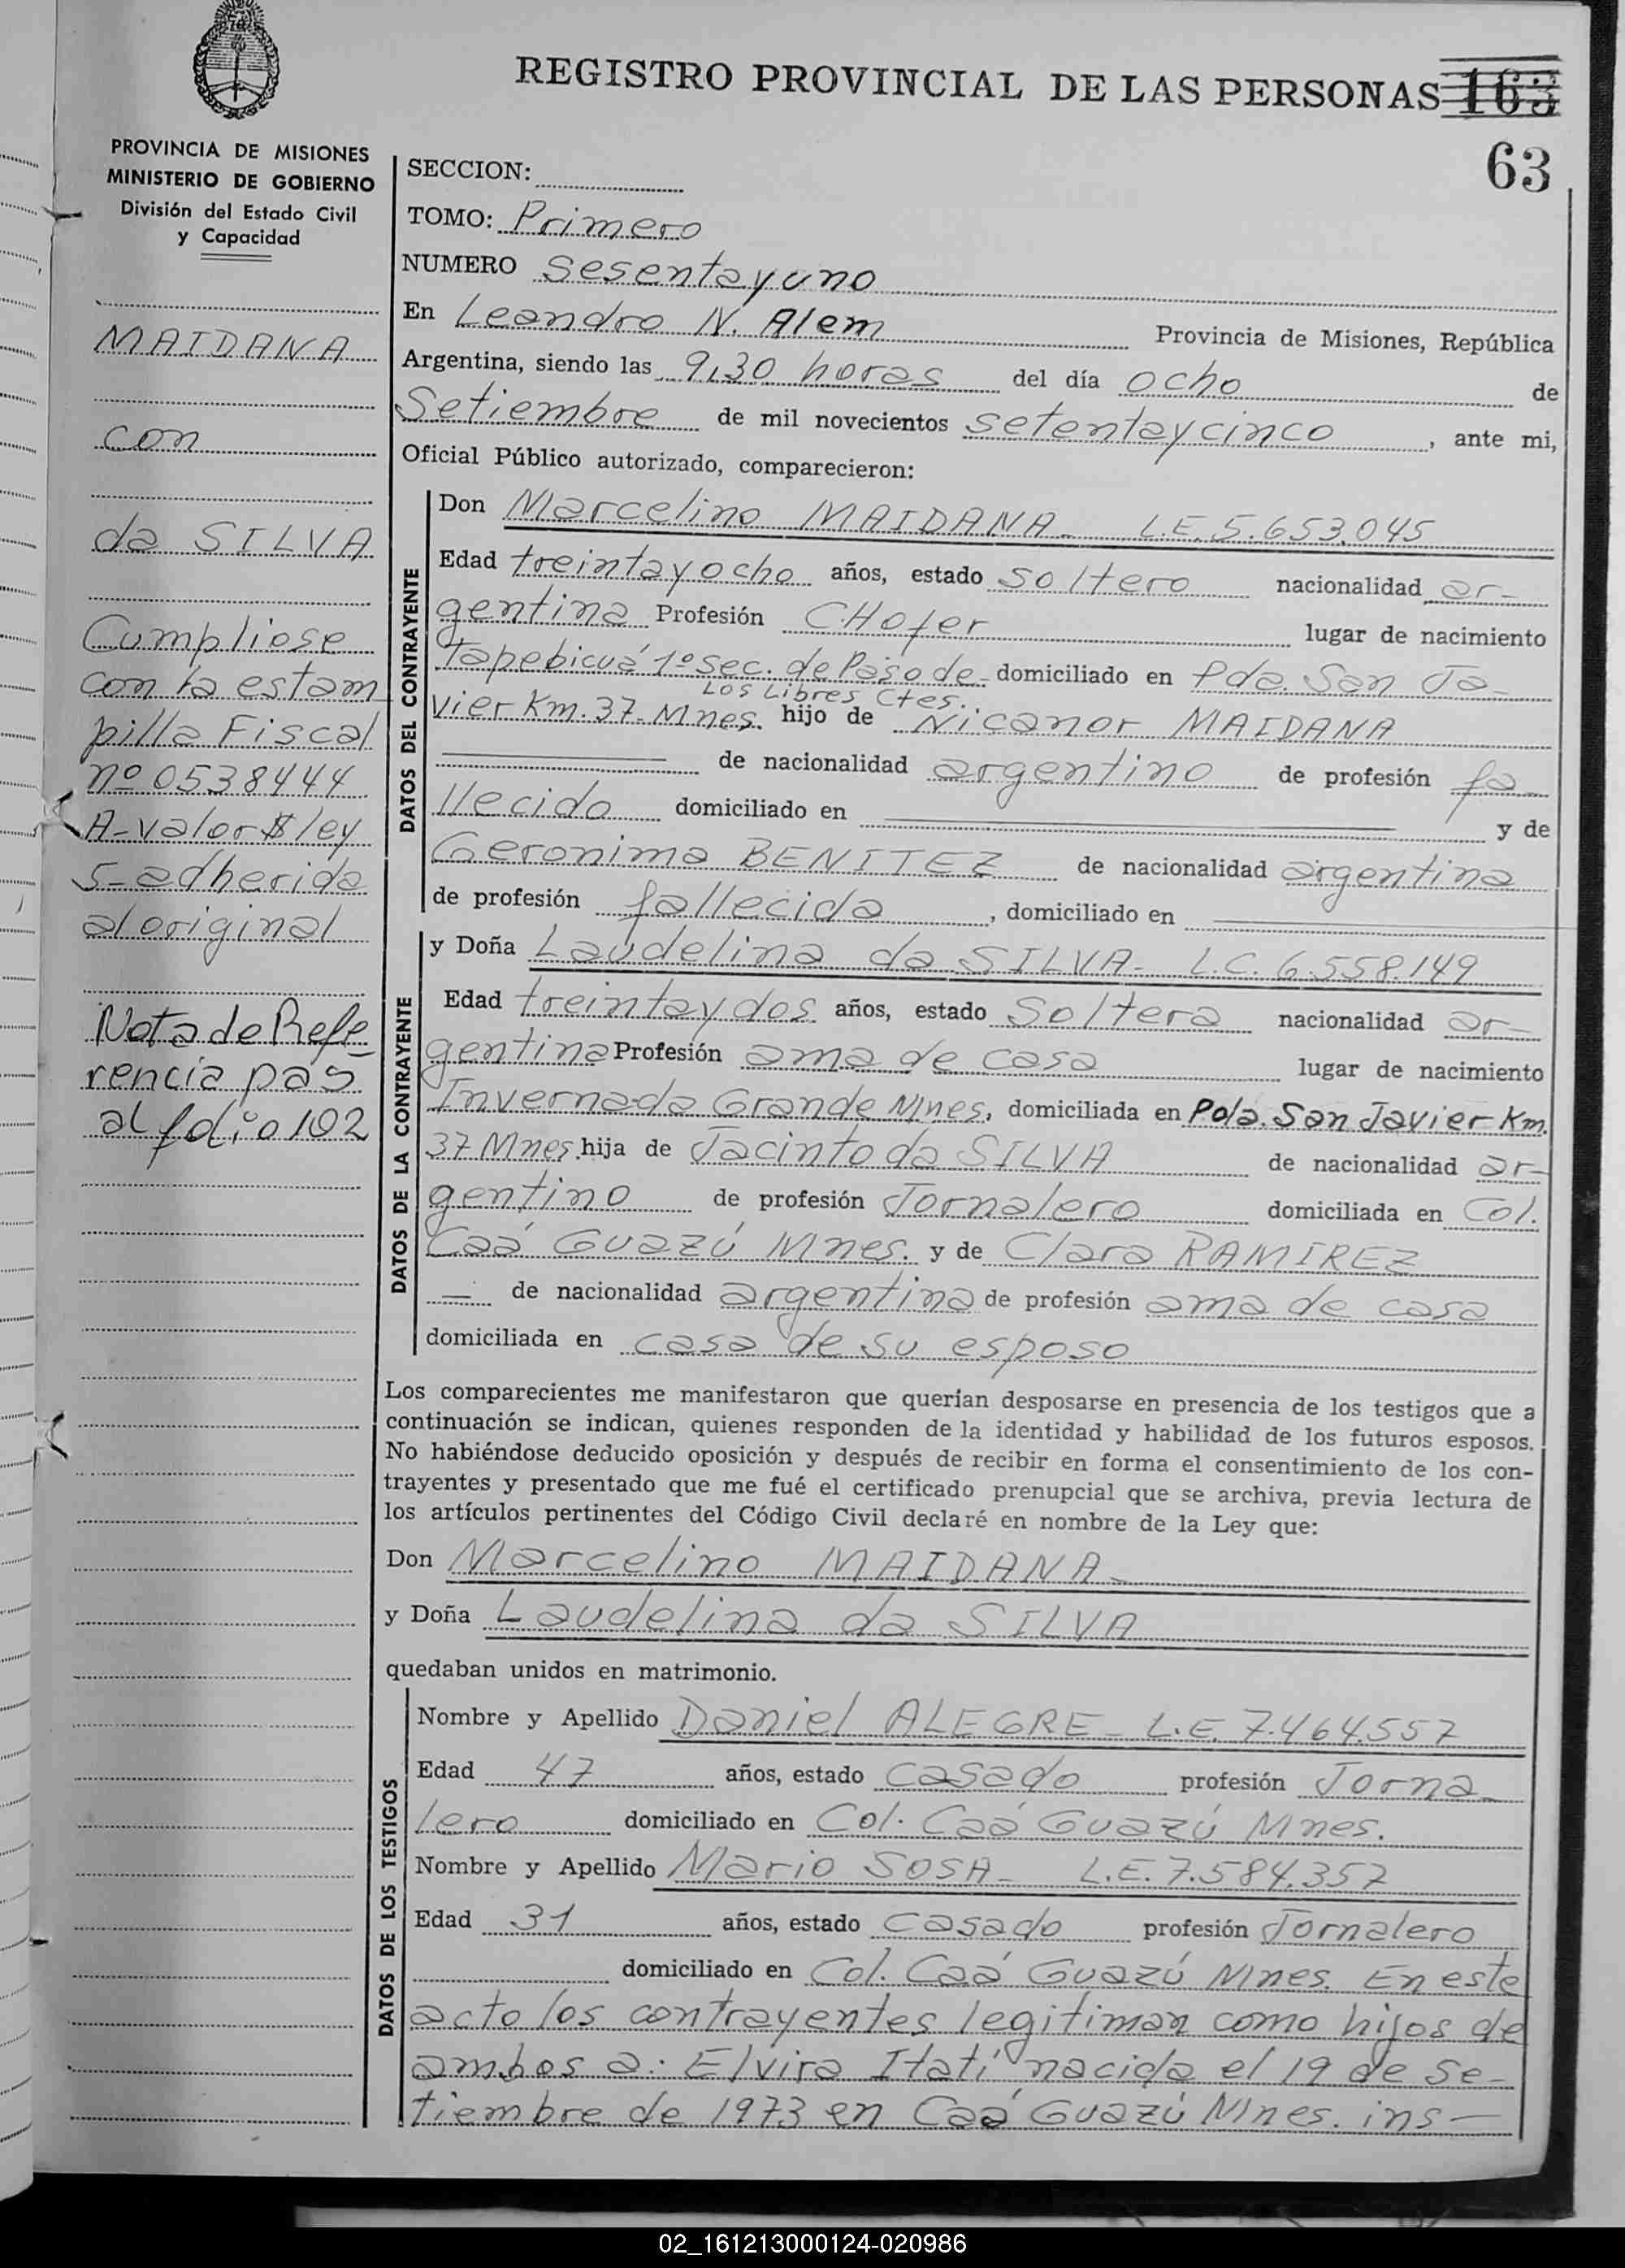 REGISTRO PROVINCIAL DE LAS PERSONAS 163
63
PROVINCIA DE MISIONES
MINISTERIO DE GOBIERNO
División del Estado Civil
y Capacidad
MAIDANA
con
da SILVA
Cumpliose
con la estam
pilla Fiscal
nº 0538444
A-valor $ ley
5- adherida
al original
Nota de Refe-
rencia pás
al folio 102
SECCION:
TOMO: Primero
NUMERO Sesentayuno
En Leandro N. Alem Provincia de Misiones, República
Argentina, siendo las 9,30 horas del día ocho de
Setiembre de mil novecientos setentaycinco, ante mi,
Oficial Público autorizado, comparecieron:
DATOS DEL CONTRAYENTE
Don Marcelino MAIDANA- L.E. 5.653.045
Edad treintayocho años, estado soltero nacionalidad ar-
gentina Profesión CHofer lugar de nacimiento
Tapebicuá 1º Sec. de Paso de- domiciliado en Pda. San Ja-
Los Libres Ctes.
vier Km. 37- Mnes. hijo de Nicanor MAIDANA
de nacionalidad argentino de profesión fa-
llecido domiciliado en y de
Geronima BENITEZ de nacionalidad argentina
de profesión fallecida, domiciliado en
DATOS DE LA CONTRAYENTE
y Doña Laudelina da SILVA- L.C. 6.558.149
Edad treintaydos años, estado Soltera nacionalidad ar-
gentina Profesión ama de casa lugar de nacimiento
Invernada Grande Mnes, domiciliada en Pda. San Javier Km.
37 Mnes. hija de Jacinto da SILVA de nacionalidad ar-
gentino de profesión Jornalero domiciliada en Col.
Caá Guazú Mnes. y de Clara RAMIREZ
— de nacionalidad argentina de profesión ama de casa
domiciliada en casa de su esposo
Los comparecientes me manifestaron que querían desposarse en presencia de los testigos que a
continuación se indican, quienes responden de la identidad y habilidad de los futuros esposos.
No habiéndose deducido oposición y después de recibir en forma el consentimiento de los con-
trayentes y presentado que me fué el certificado prenupcial que se archiva, previa lectura de
los artículos pertinentes del Código Civil declaré en nombre de la Ley que:
Don Marcelino MAIDANA-
y Doña Laudelina da SILVA
quedaban unidos en matrimonio.
DATOS DE LOS TESTIGOS
Nombre y Apellido Daniel ALEGRE- L.E. 7.464.557
Edad 47 años, estado casado profesión Jorna-
lero domiciliado en Col. Caá Guazú Mnes.
Nombre y Apellido Mario SOSA- L.E. 7.584.357
Edad 31 años, estado casado profesión Jornalero
domiciliado en Col. Caá Guazú Mnes. En este
acto los contrayentes legitiman como hijos de
ambos a: Elvira Itatí nacida el 19 de Se-
tiembre de 1973 en Caá Guazú Mnes. ins-
02_161213000124-020986